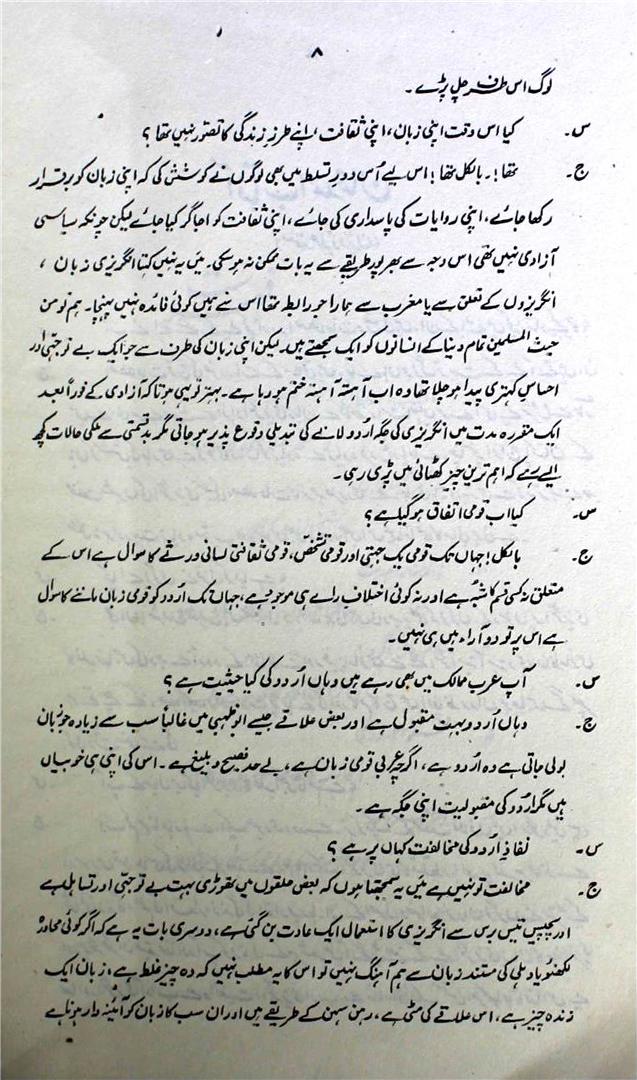 ۸
لوگ اس طرف چل پڑے۔
س۔ کیا اس وقت اپنی زبان، اپنی ثقافت، اپنے طرزِ زندگی کا تصور نہیں تھا؟
ج۔ تھا!۔ بالکل تھا! اس لیے اُس دورِ تسلط میں بھی لوگوں نے کوشش کی کہ اپنی زبان کو برقرار
رکھا جائے، اپنی روایات کی پاسداری کی جائے، اپنی ثقافت کو اجاگر کیا جائے لیکن چونکہ سیاسی
آزادی نہیں تھی اس وجہ سے بھرپور طریقے سے یہ بات ممکن نہ ہو سکی۔ میں یہ نہیں کہتا انگریزی زبان،
انگریزوں کے تعلق سے یا مغرب سے ہمارا جو رابطہ تھا اس نے ہمیں کوئی فائدہ نہیں پہنچا۔ ہم تو من
حیث المسلمین تمام دنیا کے انسانوں کو ایک سمجھتے ہیں۔ لیکن اپنی زبان کی طرف سے جو ایک بے توجہی اور
احساسِ کہتری پیدا ہو چلا تھا وہ اب آہستہ آہستہ ختم ہو رہا ہے۔ بہتر تو یہی ہوتا کہ آزادی کے فوراً بعد
ایک مقررہ مدت میں انگریزی کی جگہ اُردو لانے کی تبدیلی وقوع پذیر ہو جاتی مگر بدقسمتی سے ملکی حالات کچھ
ایسے رہے کہ اہم ترین چیز کھٹائی میں پڑی رہی۔
س۔ کیا اب قومی اتفاق ہو گیا ہے؟
ج۔ بالکل! جہاں تک قومی یک جہتی اور قومی تشخص، قومی ثقافتی لسانی ورثے کا سوال ہے اس کے
متعلق نہ کسی قسم کا شبہ ہے اور نہ کوئی اختلافِ رائے ہی موجود ہے، جہاں تک اردو کو قومی زبان ماننے کا سوال
ہے اس پر تو دو آراء ہیں ہی نہیں۔
س۔ آپ عرب ممالک میں بھی رہے ہیں وہاں اُردو کی کیا حیثیت ہے؟
ج۔ وہاں اُردو بہت مقبول ہے اور بعض علاقے جیسے ابوظہبی میں غالباً سب سے زیادہ جو زبان
بولی جاتی ہے وہ اُردو ہے، اگرچہ عربی قومی زبان ہے، بے حد فصیح و بلیغ ہے۔ اس کی اپنی ہی خوبیاں
ہیں مگر اُردو کی مقبولیت اپنی جگہ ہے۔
س۔ نفاذِ اُردو کی مخالفت کہاں پر ہے؟
ج۔ مخالفت تو نہیں ہے میں یہ سمجھتا ہوں کہ بعض حلقوں میں تھوڑی بہت بے توجہی اور تساہل ہے
اور پچیس تیس برس سے انگریزی کا استعمال ایک عادت بن گئی ہے، دوسری بات یہ ہے کہ اگر کوئی محاورہ
لکھنؤ یا دہلی کی مستند زبان سے ہم آہنگ نہیں تو اس کا یہ مطلب نہیں کہ وہ چیز غلط ہے، زبان ایک
زندہ چیز ہے، اس علاقے کی مٹی ہے، رہن سہن کے طریقے ہیں اور ان سب کا زبان کو آئینہ دار ہونا ہے